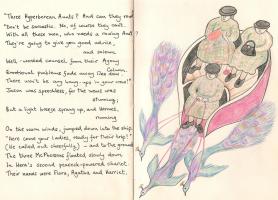 "Three Hyperborean Aunts? And can they read?
"Don't be sarcastic. No, of course they can't.
With all these men, who needs a reading Aunt?
They're going to give you good advice,
and solemn
Well-worded counsel from their Agony
Column.
Emotional problems fade away like dew.
There won't be any hang-ups in your crew!"
Jason was speechless, for the news was
stunning;
But a light breeze sprang up, and Hermes,
running
On the warm winds, jumped down into the ship.
"Here come your ladies, ready for their trip!"
(He called out cheerfully,) – and to the ground
The three McPhersons floated slowly down
In Hera's second peacock-powered chariot.
Their names were Flora, Agatha and Harriet.